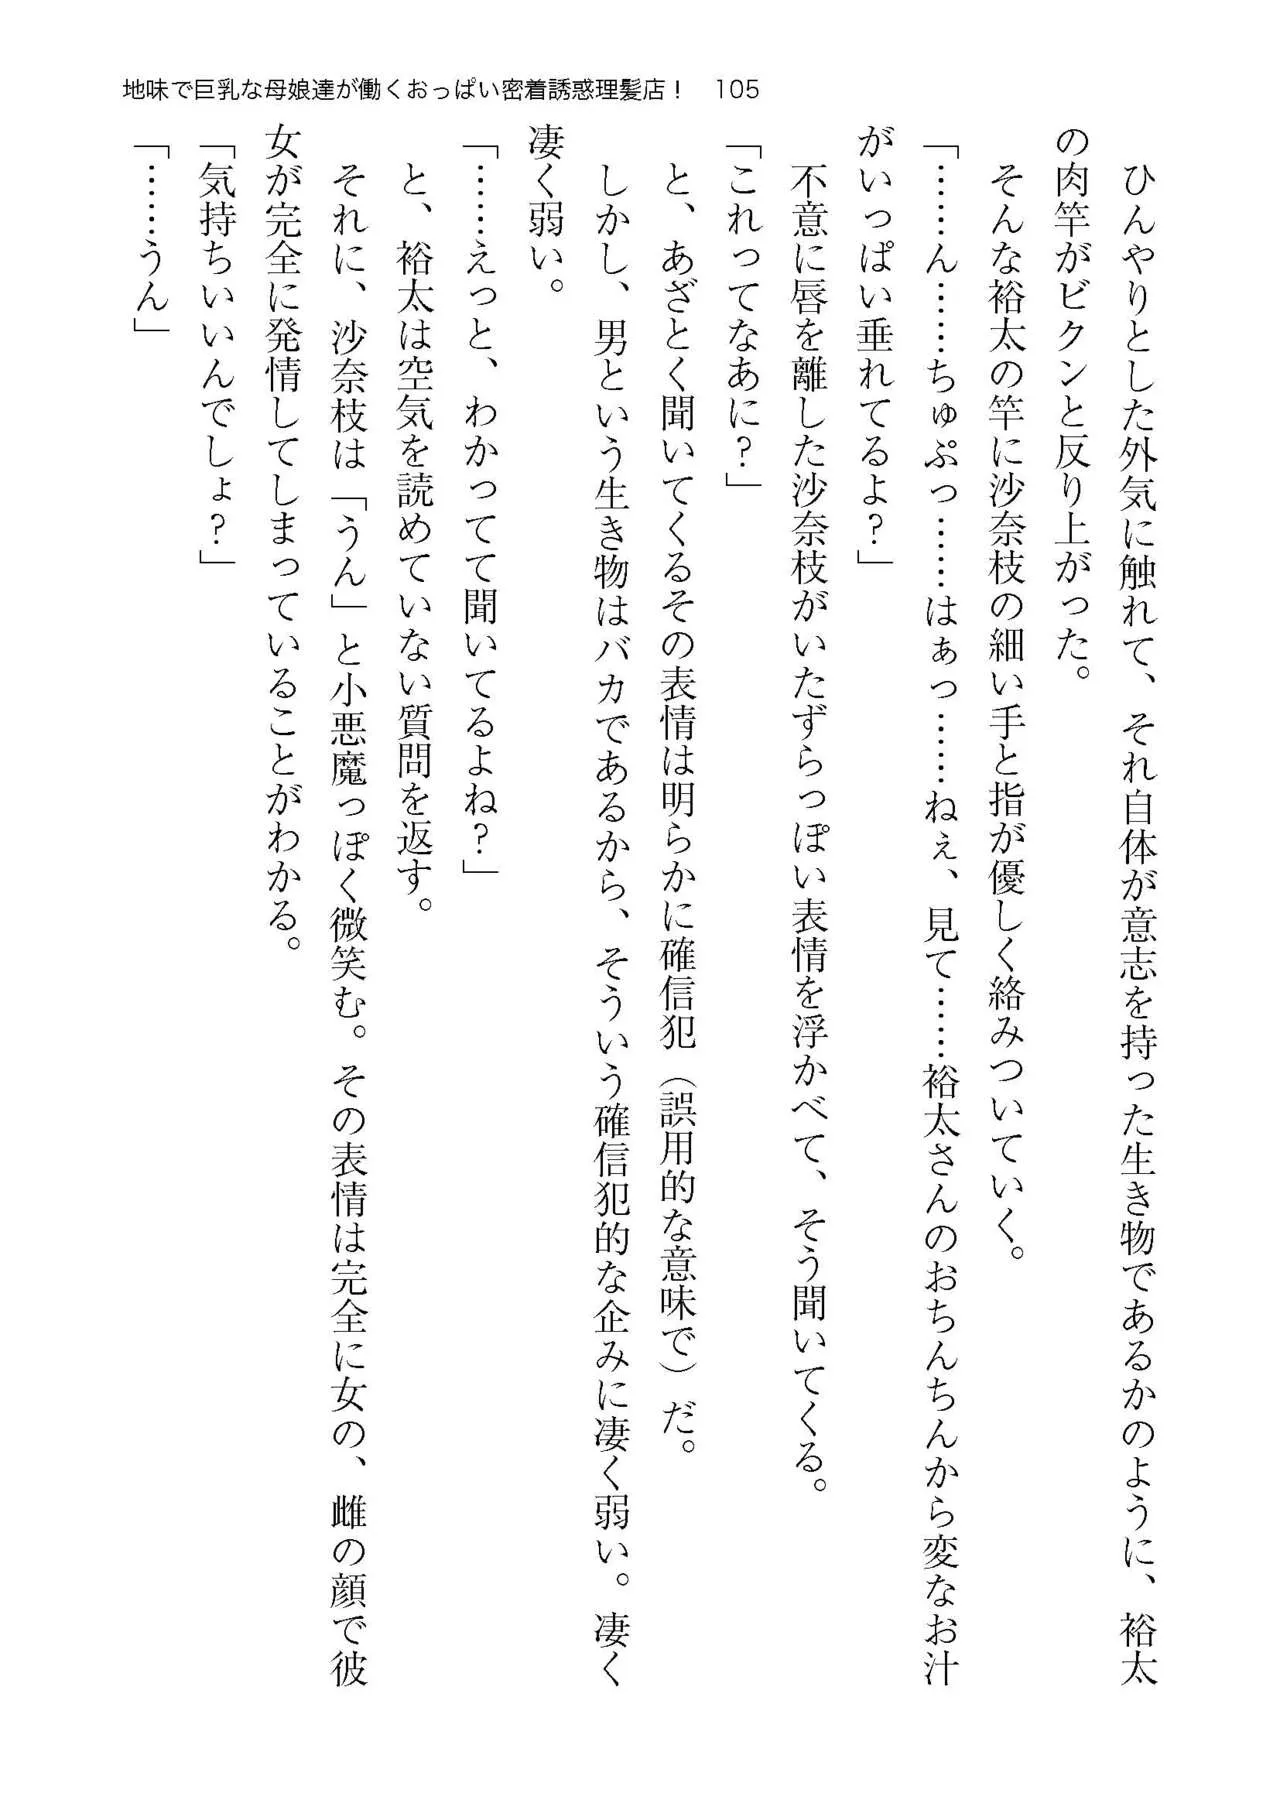 地味で巨乳な母娘達が働くおっぱい密着誘惑理髪店！　105
　ひんやりとした外気に触れて、それ自体が意志を持った生き物であるかのように、裕太
の肉竿がビクンと反り上がった。
　そんな裕太の竿に沙奈枝の細い手と指が優しく絡みついていく。
「……ん……ちゅぷっ……はぁっ……ねぇ、見て……裕太さんのおちんちんから変なお汁
がいっぱい垂れてるよ？」
　不意に唇を離した沙奈枝がいたずらっぽい表情を浮かべて、そう聞いてくる。
「これってなあに？」
　と、あざとく聞いてくるその表情は明らかに確信犯（誤用的な意味で）だ。
　しかし、男という生き物はバカであるから、そういう確信犯的な企みに凄く弱い。凄く
凄く弱い。
「……えっと、わかってて聞いてるよね？」
　と、裕太は空気を読めていない質問を返す。
　それに、沙奈枝は「うん」と小悪魔っぽく微笑む。その表情は完全に女の、雌の顔で彼
女が完全に発情してしまっていることがわかる。
「気持ちいいんでしょ？」
「……うん」